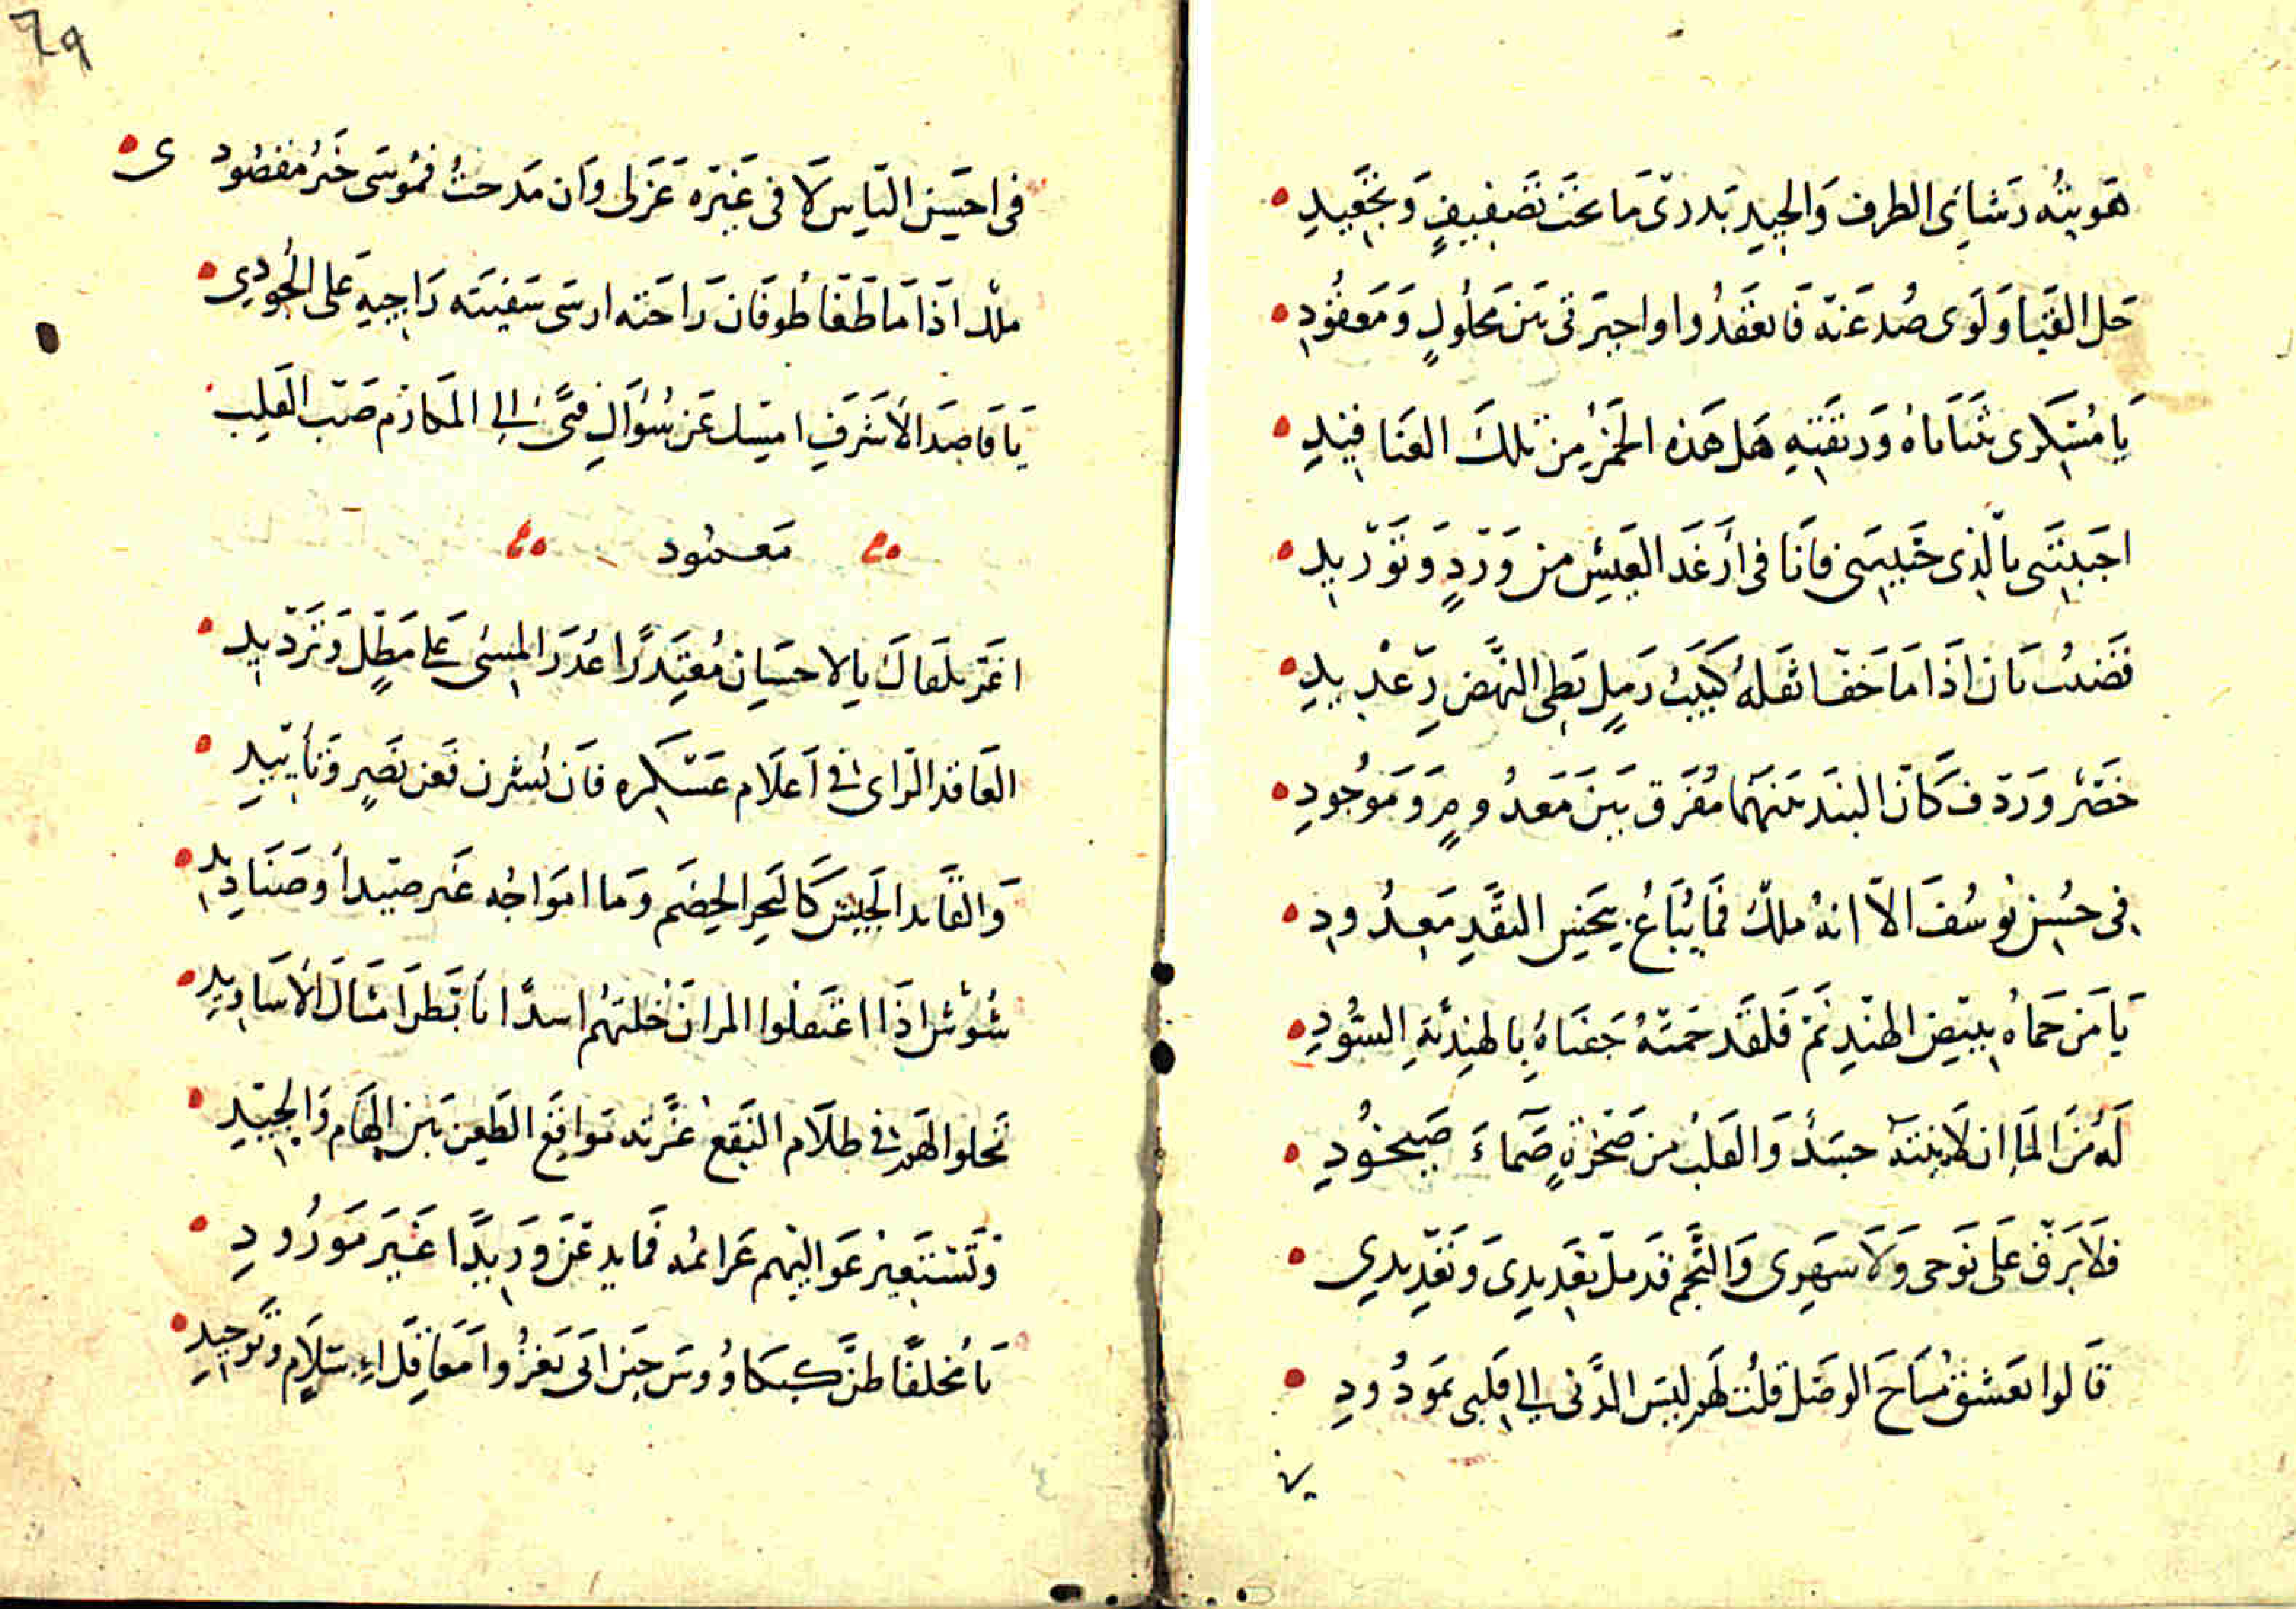 هَويتُه رَشايَ الطرف وَالجِيدِ بَدرىّ مَا تحتَ تَصفيفٍ وَتجعِيدِ
حَل القَبا وَلَوى صُدغَيهِ فَانعَقَدُوا واحيرَتى بَينَ مَحلُولٍ وَمَعقُودِ
يَا مُسْكِرى بثنَايَاهُ وَريقَتِهِ هَل هَذه الخَمرُ مِن تلكَ العَنَاقيدِ
اجبَيتَنى بالّذى خَدّيك فانَا فى أرغَد العَيشِ من وَردٍ وَتَوْريدِ
قضيبُ بَان اذَا مَا خفّ اثقلهُ كثيبُ رَملٍ بَطِى النهَضِ رِعْديدِ
خَصْر ورَدْف كَانّ البند بَينَهُمَا مُفرّق بَينَ مَعدُومٍ وَمَوجُودِ
فى حُسنِ يُوسُفَ الّا انهُ ملكٌ فَمَا يُبَاعُ بَخسِ النَقدِ مَعدُودِ
يَا مَن حَمَاهُ ببيضِ الهندِ نَمْ فَلَقَد حَمَتهُ جَفنَاهُ بِالهِندِيَّةِ السُّودِ
لَهُ مِنَ المَا ان لَاينتَهُ جسَدٌ وَالقَلبُ من صَخرَةٍ صَمَّاءَ صَيخُودِ
فلا يَرقّ عَلَى نَوحى وَلَا سَهرِى وَالنَّجم قد ملّ تعْديدىَ وَتَعْدِيدِى
قَالوا تعَشق مُبَاحَ الوَصَل قلت لَهم ليسَ الدَّنى الى قَلبى بمَودُودِ
فى احسَن النّاس لَا فى غيرَه غَزَلى وَان مَدَحتُ فمُوسَى خَيرُ مَقصُودى
ملك اذَا مَا طَغَا طُوفَان رَاحَته ارسَى سَفينَته رَاجيهِ عَلى الجُودِى
يَا قاصدَ الأشرَفِ امسِك عَن سُؤالِ فتًى الى المَكارم صَبّ القَلب
مَعمُود
اغرّ يلقاكَ بالاحسَانِ مُعتذِرًا عُذرَ المسِى عَلى مَطلٍ وَترديدِ
العَاقد الرَاى فى اَعلَام عَسْكره فان نُشرن فَعن نَصرٍ وَتَأييدِ
وَالقَايد الجَيشَ كَالبَحرِ الخِضَم وَما امَوَاجُه غَير صِيدٍ أو صَنَادِيدِ
شُوْسٌ اذَا اعتَقَلُوا المران خلتَهُم اسدًا تأبَّط امثَالَ الأَسَاودِ
تَجلوا لهم فى ظلَام النَقع غُرّته مَواقِعَ الطَعن بَينَ الهَام وَالجيدِ
وَتَستَعِيرُ عَوَاليهِم عَزائمه فَما يدعن وَريدًا غَيرَ مَورُودِ
يَا مُخلفًا ظنّ كيكاوُوس حينَ اتَى يَغزُوا مَعَاقِل اِسلَامٍ وَتَوحِيدِ